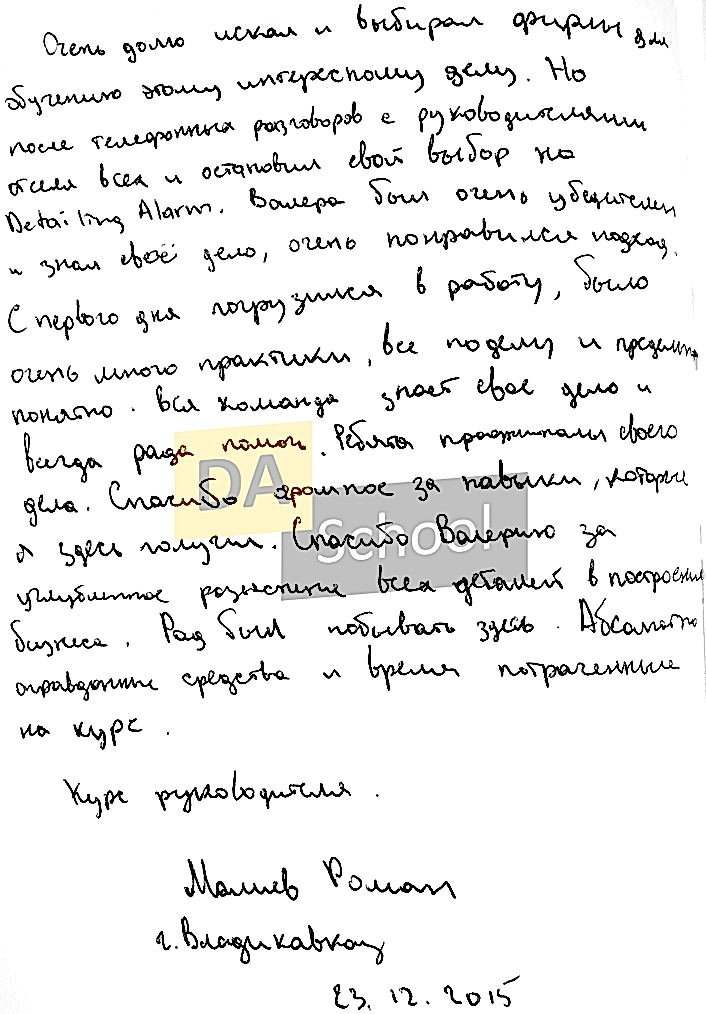 Очень долго искал и выбирал фирмы для
обучению этому интересному делу. Но
после телефонных разговоров с руководителями
отсеял всех и остановил свой выбор на
Detailing Alarm. Валера был очень убедителен
и знал своё дело, очень понравился подход.
С первого дня погрузился в работу, было
очень много практики, все по делу и предельно
понятно. Вся команда знает свое дело и
всегда рада помочь. Ребята профессионалы своего
дела. Спасибо огромное за навыки, которые
я здесь получил. Спасибо Валерию за
углубленное разъяснение всех деталей в построении
бизнеса. Рад был побывать здесь. Абсолютно
оправданные средства и время потраченные
на курс.
Курс руководителя.
Малиев Роман
г. Владикавказ
23.12.2015
DA
School